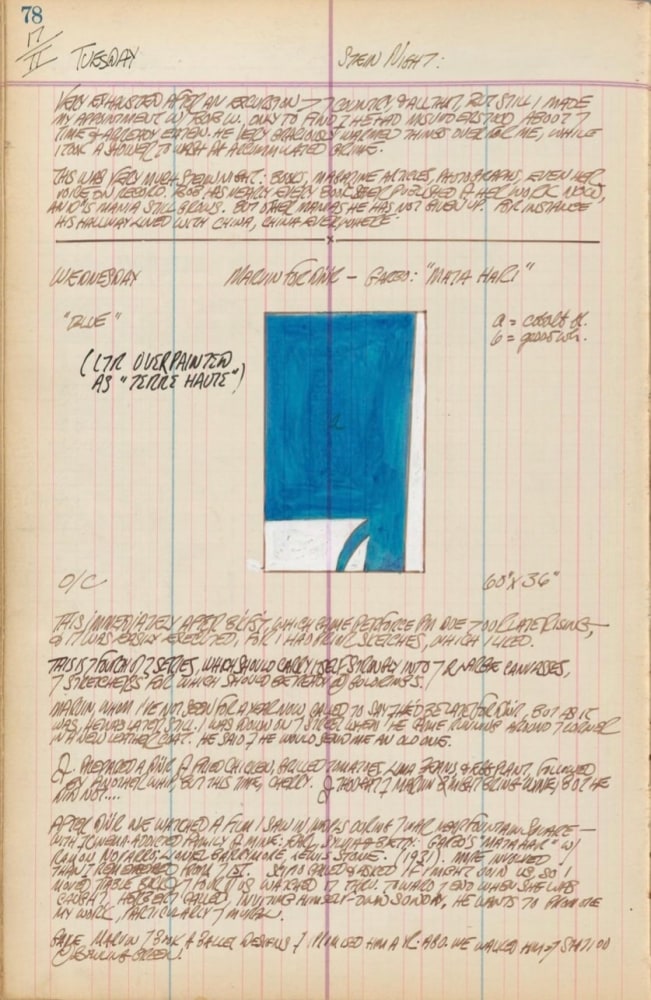 78
17/II TUESDAY STEIN NIGHT:
VERY EXHAUSTED AFTER AN EXCURSION → 7 COUNTRY & ALL THAT, BUT STILL I MADE
MY APPOINTMENT W/ BOB W. ONLY TO FIND I HAD MISUNDERSTOOD ABOUT 7
TIME & ALREADY EATEN. HE VERY GRACIOUSLY WARMED THINGS OVER FOR ME, WHILE
I TOOK A SHOWER TO WASH AN ACCUMULATED GRIME.
THIS WAS VERY MUCH STEIN NIGHT: BOOKS, MAGAZINE ARTICLES, PHOTOGRAPHS, EVEN HER
VOICE ON RECORD. BOB HAS NEARLY EVERY BOOK EVER PUBLISHED OF HER WORK NOW,
MANIA STILL GROWS. BUT OTHER MANIAS HE HAS NOT GIVEN UP. FOR INSTANCE
HIS HALLWAY LINED WITH CHINA, CHINA EVERYWHERE.
WEDNESDAY MARVIN FOR DINR — GARBO: "MATA HARI"
"BLUE"
a = cobalt bl.
b = good wh.
(LTR OVERPAINTED
AS "TERRE HAUTE")
a
O/C 60" X 36"
THIS IMMEDIATELY AFTER B'KFST, WHICH CAME PERFORCE PM DUE 7 OUR LATE RISING,
& IT WAS EASILY EXECUTED, FOR I HAD SKETCHES, WHICH I LIKED.
THIS IS 7 FOURTH OF 7 SERIES, WHICH SHOULD CARRY ITSELF STRONGLY INTO 7 LARGE CANVASSES,
7 STRETCHERS FOR WHICH SHOULD BE READY @ GOLDRINGS.
MARVIN, WHOM I'VE NOT SEEN FOR A YEAR NOW CALLED TO SAY HE'D BE LATE FOR DINR, BUT AS IT
WAS, HE WAS LATER STILL. I WAS DOWN ON 7 STREET WHEN HE CAME RUNNING AROUND 7 CORNER
IN A NEW LEATHER COAT. HE SAID HE WOULD SEND ME AN OLD ONE.
PREPARED A DINR OF FRIED CHICKEN, BROILED TOMATOES, LIMA BEANS & EGGPLANT, FOLLOWED
BY ANOTHER WHIP, BUT THIS TIME, CHERRY. THOUGHT MARVIN MIGHT BRING WINE, BUT HE
DID NOT....
AFTER DINR WE WATCHED A FILM I SAW IN DURING 7 WAR NEAR FOUNTAIN SQUARE —
WITH CINEMA-ADDICTED FAMILY OF MINE: & BETTY: GARBO'S "MATA HARI" W/
RAMON NOVARRO, LIONEL BARRYMORE, LEWIS STONE. (1931). MORE INVOLVED
THAN I REMEMBERED FROM 7 LAST. CALLED & ASKED IF MIGHT JOIN US, SO I
MOVED TABLE BACK & FOUR OF US WATCHED IT THRU. TOWARD 7 END WHEN SHE WAS
CAUGHT, HERBERT CALLED, INVITING HIMSELF DOWN SUNDAY, HE WANTS TO PROMOTE
MY WORK, PARTICULARLY 7 MURAL.
GAVE MARVIN 7 BOOK OF BALLET DESIGNS I PROMISED HIM A YR. AGO. WE WALKED HIM 7 STATION
@ BOWLING GREEN.